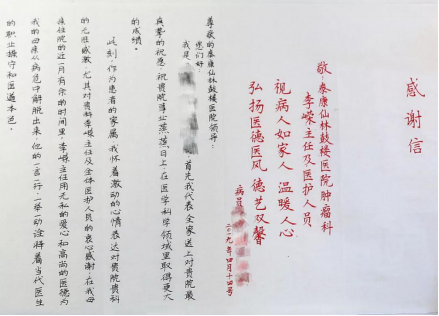 感谢信
敬:泰康仙林鼓楼医院肿瘤科
李嵘主任及医护人员
视病人如家人 温暖人心
弘扬医德医风 德艺双馨
病员
二〇一九年四月十四号
尊敬的泰康仙林鼓楼医院领导:
您们好:
我是 首先我代表全家送上对贵院最
真挚的祝愿:祝贵院事业蒸蒸日上,在医学科学领域里取得更大
的成绩。
此刻作为患者的家属,我怀着激动的心情表达对贵院贵科
的无胜感激,尤其对贵科李嵘主任及全体医护人员的衷心感谢,在我母
住院的近一月有余的时间里,李嵘主任用无私的爱心和高尚的医德为
我的母亲从病危中解脱出来,他的一言一行,一举一动诠释着当代医生
的职业操守和医道本色。